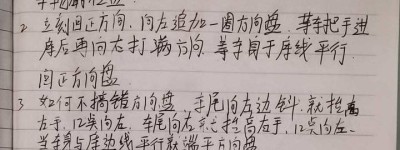 2、立刻回正方向、向左追加一圈方向盘、等车把手进
库后再向右打满方向、等车身于库线平行
回正方向盘
3、如何不搞错方向盘、车尾向左边斜、就抬高
右手、12点向左、车尾向右抬高左手、12点向
当车身与库边线平行就端平方向盘